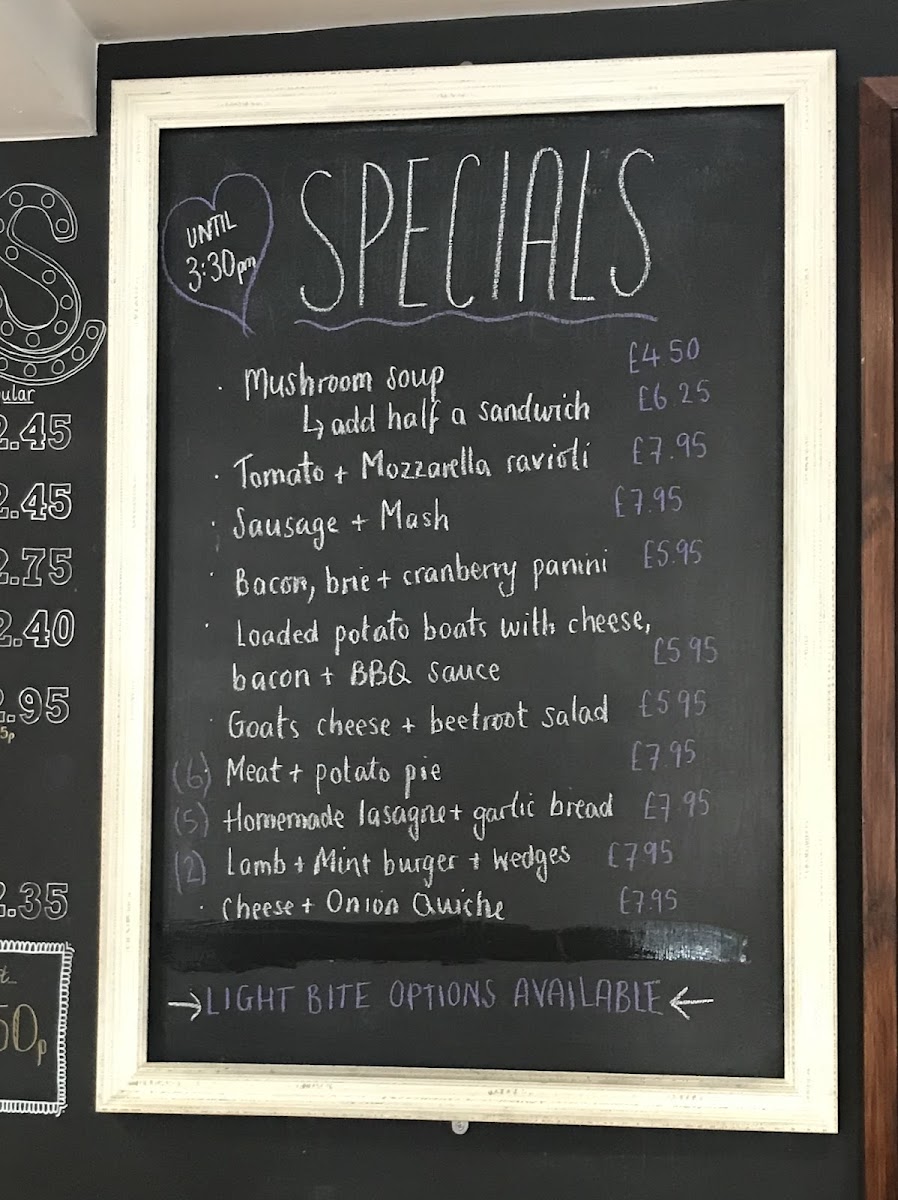 SPECIALS
UNTIL
3:30pm
· Mushroom soup £4.50
↳ add half a sandwich £6.25
· Tomato + Mozzarella ravioli £7.95
· Sausage + Mash £7.95
· Bacon, brie + cranberry panini £5.95
· Loaded potato boats with cheese,
bacon + BBQ sauce £5.95
· Goats cheese + beetroot salad £5.95
(6) Meat + potato pie £7.95
(5) Homemade lasagne + garlic bread £7.95
(2) Lamb + Mint burger + wedges £7.95
· Cheese + Onion Quiche £7.95
→ LIGHT BITE OPTIONS AVAILABLE ←
S
ular
2.45
2.45
2.75
2.40
2.95
5p
2.35
50p